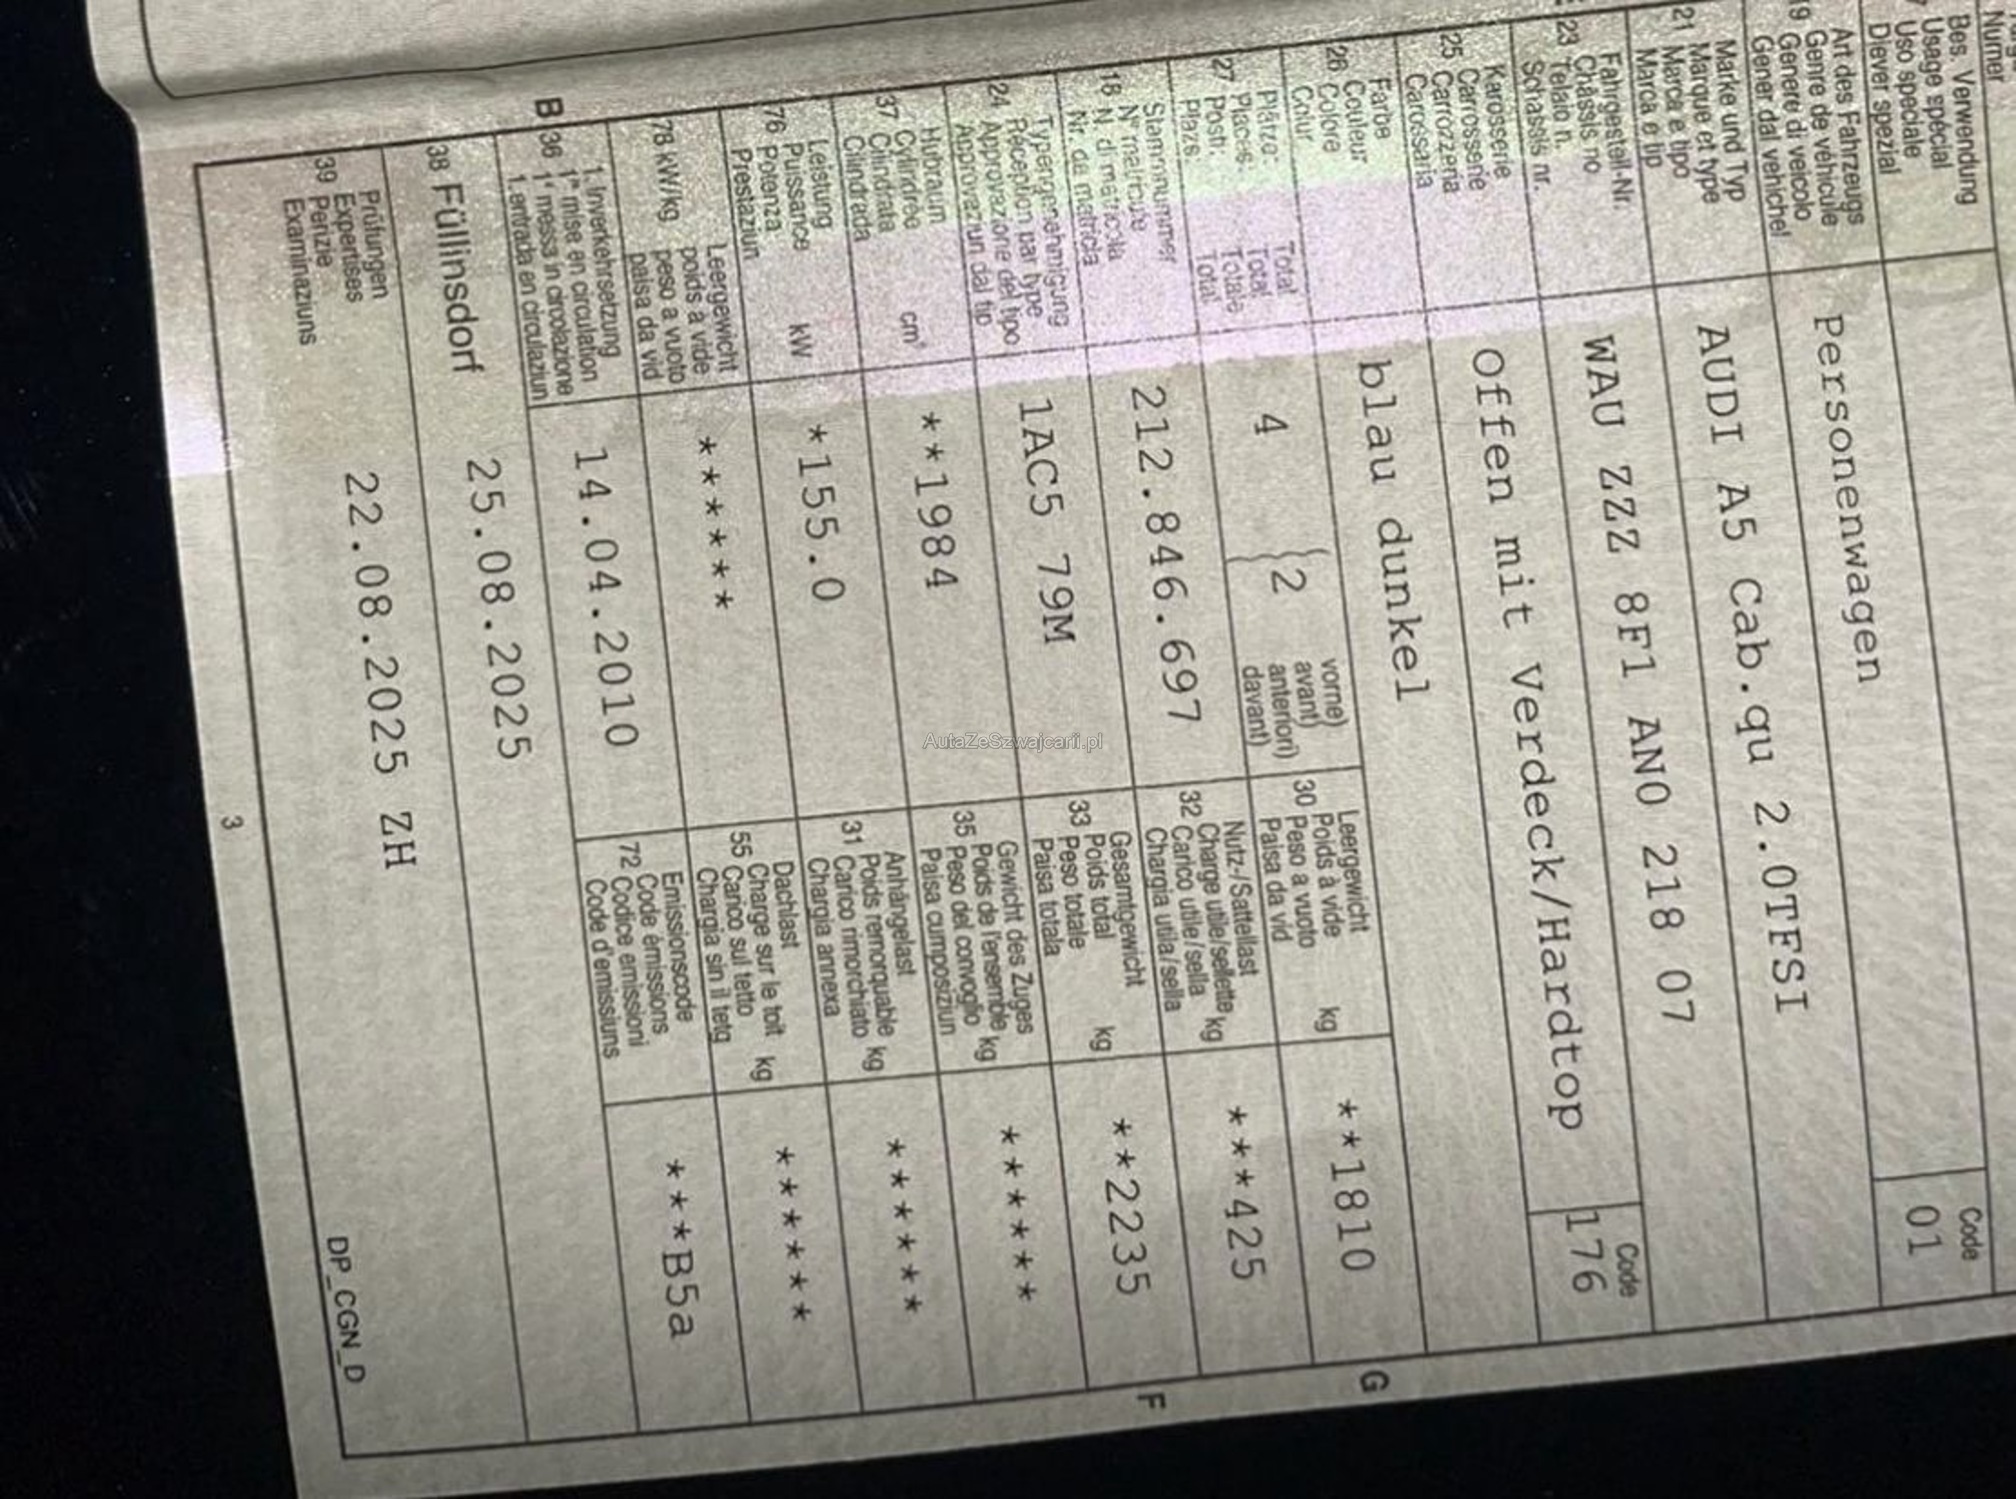 Numer
Bes. Verwendung
Usage spécial
Uso speciale
Diever spezial
Code
01
Art des Fahrzeugs
19 Genre de véhicule
Genere di veicolo
Gener dal vehichel
Personenwagen
Marke und Typ
21 Marque et type
Marca e tipo
Marca e tip
AUDI A5 Cab.qu 2.0TFSI
Fahrgestell-Nr.
23 Châssis no
Telaio n.
Schassis nr.
WAU ZZZ 8F1 AN0 218 07
Karosserie
25 Carrosserie
Carrozzeria
Carossaria
Offen mit Verdeck/Hardtop
Code
176
Farbe
26 Couleur
Colore
Colur
blau dunkel
Plätze:
27 Places:
Posti:
Plazs:
Total
Total
Totale
Total
4
2
vorne)
avant)
anteriori)
davant)
Leergewicht
30 Poids à vide
Peso a vuoto
Paisa da vid
kg
**1810
G
Stammnummer
18 N° matricule
N. di matricola
Nr. da matricla
212.846.697
Nutz-/Sattellast
32 Charge utile/sellette kg
Carico utile/sella
Chargia utila/sella
***425
Typengenehmigung
24 Réception par type
Approvazione del tipo
Approvaziun dal tip
1AC5 79M
Gesamtgewicht
33 Poids total
Peso totale
Paisa totala
kg
**2235
F
Hubraum
37 Cylindrée
Cilindrata
Cilindrada
cm³
**1984
Gewicht des Zuges
35 Poids de l'ensemble kg
Peso del convoglio
Paisa cumposiziun
******
Leistung
76 Puissance
Potenza
Prestaziun
kW
*155.0
Anhängelast
31 Poids remorquable kg
Carico rimorchiato
Chargia annexa
******
78 kW/kg
Leergewicht
poids à vide
peso a vuoto
paisa da vid
******
Dachlast
55 Charge sur le toit kg
Carico sul tetto
Chargia sin il tetg
******
B
1. Inverkehrsetzung
36 1re mise en circulation
1a messa in circolazione
1. entrada en circulaziun
14.04.2010
Emissionscode
72 Code émissions
Codice emissioni
Code d'emissiuns
***B5a
38 Füllinsdorf
25.08.2025
Prüfungen
39 Expertises
Perizie
Examinaziuns
22.08.2025 ZH
3
DP_CGN_D
AutaZeSzwajcarii.pl